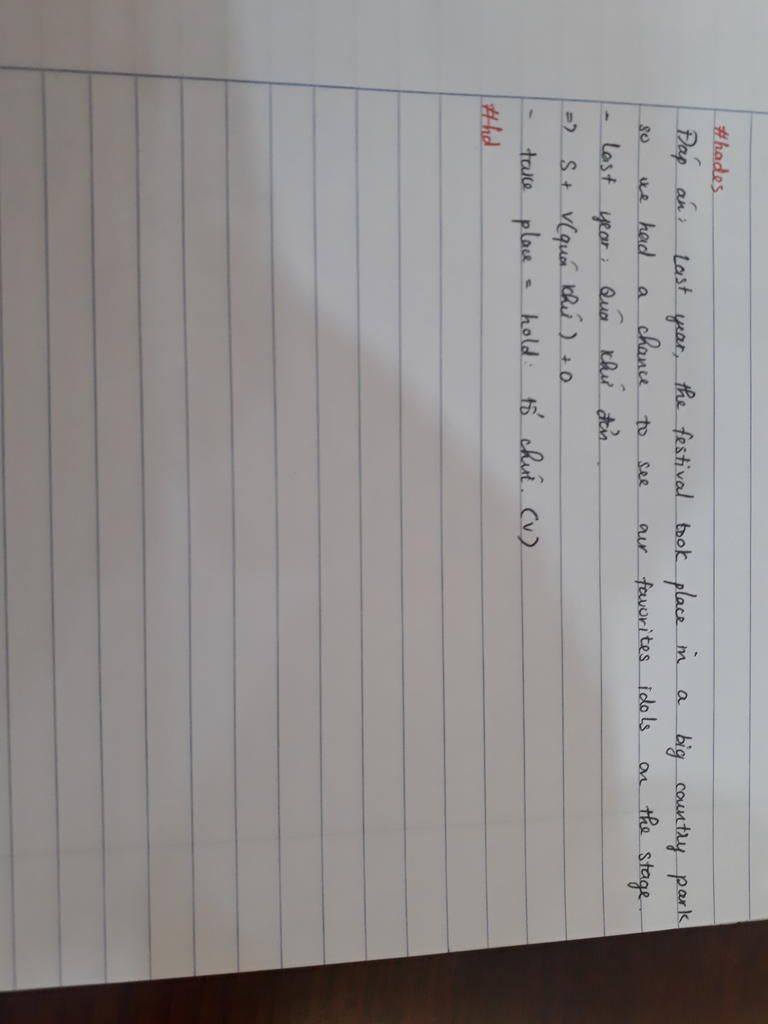 #hades
Đáp án: Last year, the festival took place in a big country park
so we had a chance to see our favorites idols on the stage.
- Last year: Quá khứ đơn.
=> S + V(quá khứ) + O
- take place = hold: tổ chức. (v)
#hd